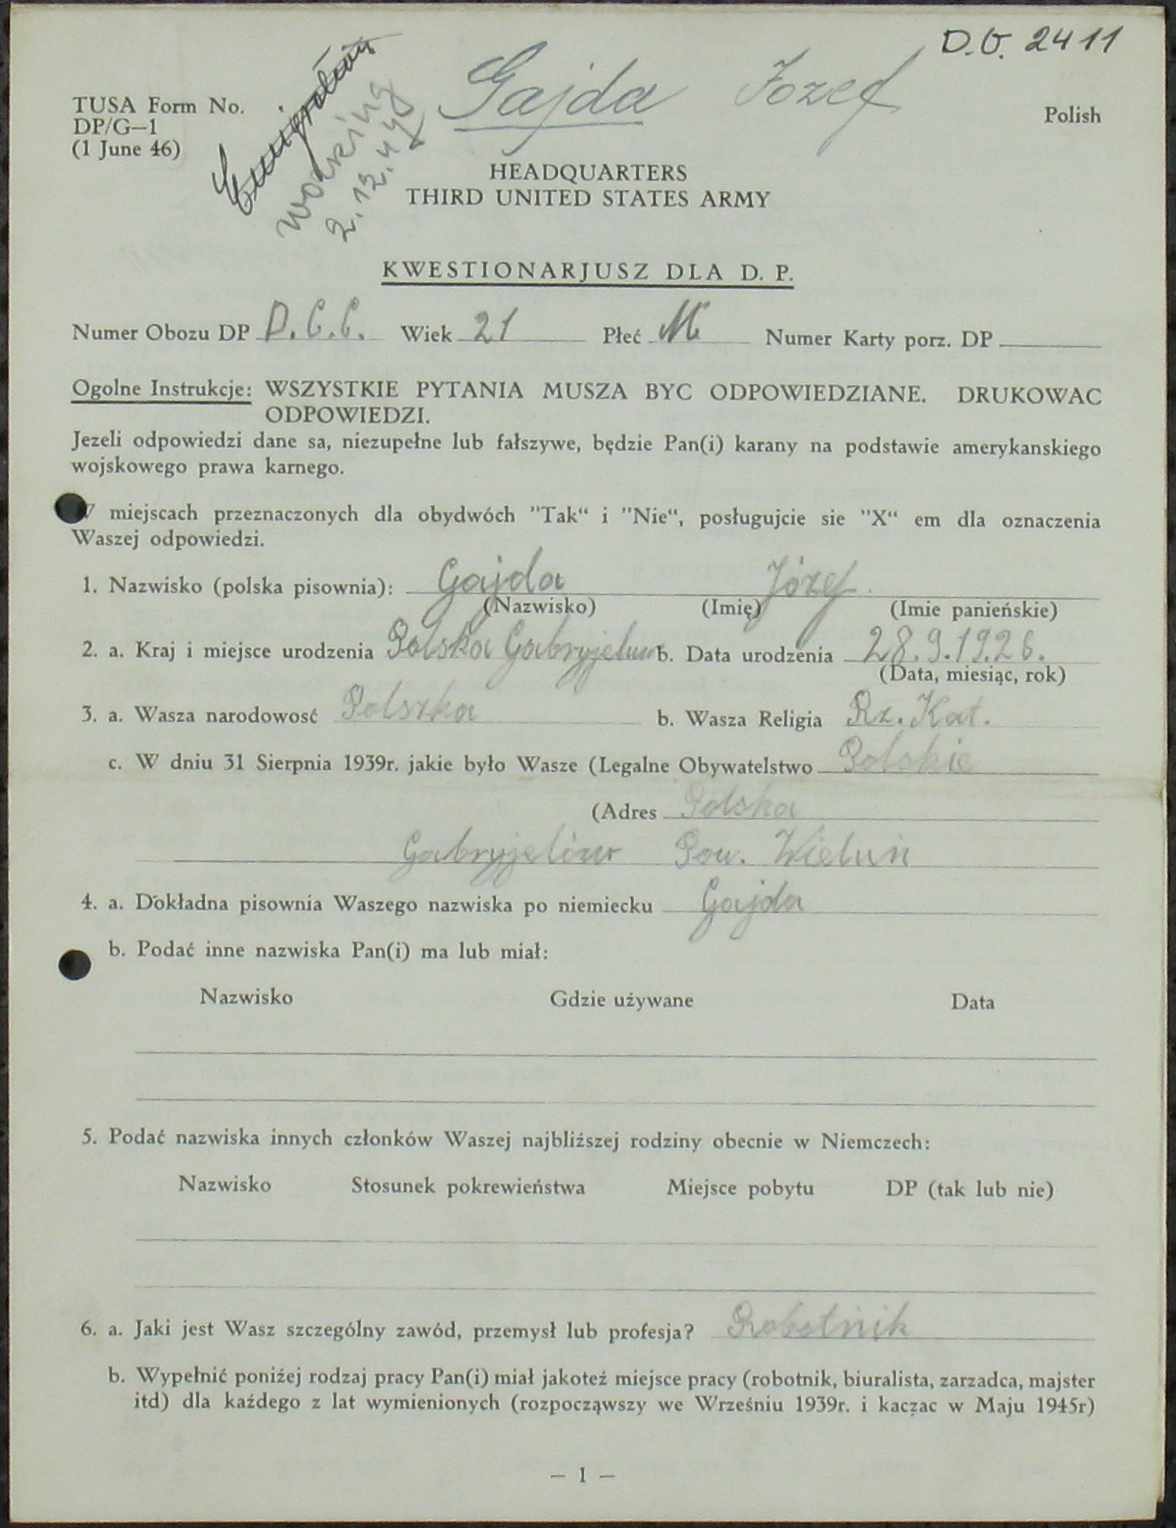 D.O. 2411
Gajda Józef
TUSA Form No.
DP/G—1
(1 June 46)
Working
2.12.48
Polish
HEADQUARTERS
THIRD UNITED STATES ARMY
KWESTIONARJUSZ DLA D. P.
Numer Obozu DP D.C.C. Wiek 21 Płeć M Numer Karty porz. DP
Ogolne Instrukcje: WSZYSTKIE PYTANIA MUSZA BYC ODPOWIEDZIANE. DRUKOWAC
ODPOWIEDZI.
Jezeli odpowiedzi dane sa, niezupełne lub fałszywe, będzie Pan(i) karany na podstawie amerykanskiego
wojskowego prawa karnego.
W miejscach przeznaczonych dla obydwóch "Tak“ i "Nie“, posługujcie sie "X“ em dla oznaczenia
Waszej odpowiedzi.
1. Nazwisko (polska pisownia): Gajda Józef
(Nazwisko) (Imię) (Imie panieńskie)
2. a. Kraj i miejsce urodzenia Polska Gabryjelów b. Data urodzenia 28.9.1926.
(Data, miesiąc, rok)
3. a. Wasza narodowosć Polszka b. Wasza Religia Rz. Kat.
c. W dniu 31 Sierpnia 1939r. jakie było Wasze (Legalne Obywatelstwo Polskie
(Adres Polska
Gabryjelów Pow. Wieluń
4. a. Dokładna pisownia Waszego nazwiska po niemiecku Gajda
b. Podać inne nazwiska Pan(i) ma lub miał:
Nazwisko Gdzie używane Data
5. Podać nazwiska innych członków Waszej najbliższej rodziny obecnie w Niemczech:
Nazwisko Stosunek pokrewieństwa Miejsce pobytu DP (tak lub nie)
6. a. Jaki jest Wasz szczególny zawód, przemysł lub profesja? Robotnik
b. Wypełnić poniżej rodzaj pracy Pan(i) miał jakoteż miejsce pracy (robotnik, biuralista, zarzadca, majster
itd) dla każdego z lat wymienionych (rozpocząwszy we Wrześniu 1939r. i kaczac w Maju 1945r)
— 1 —